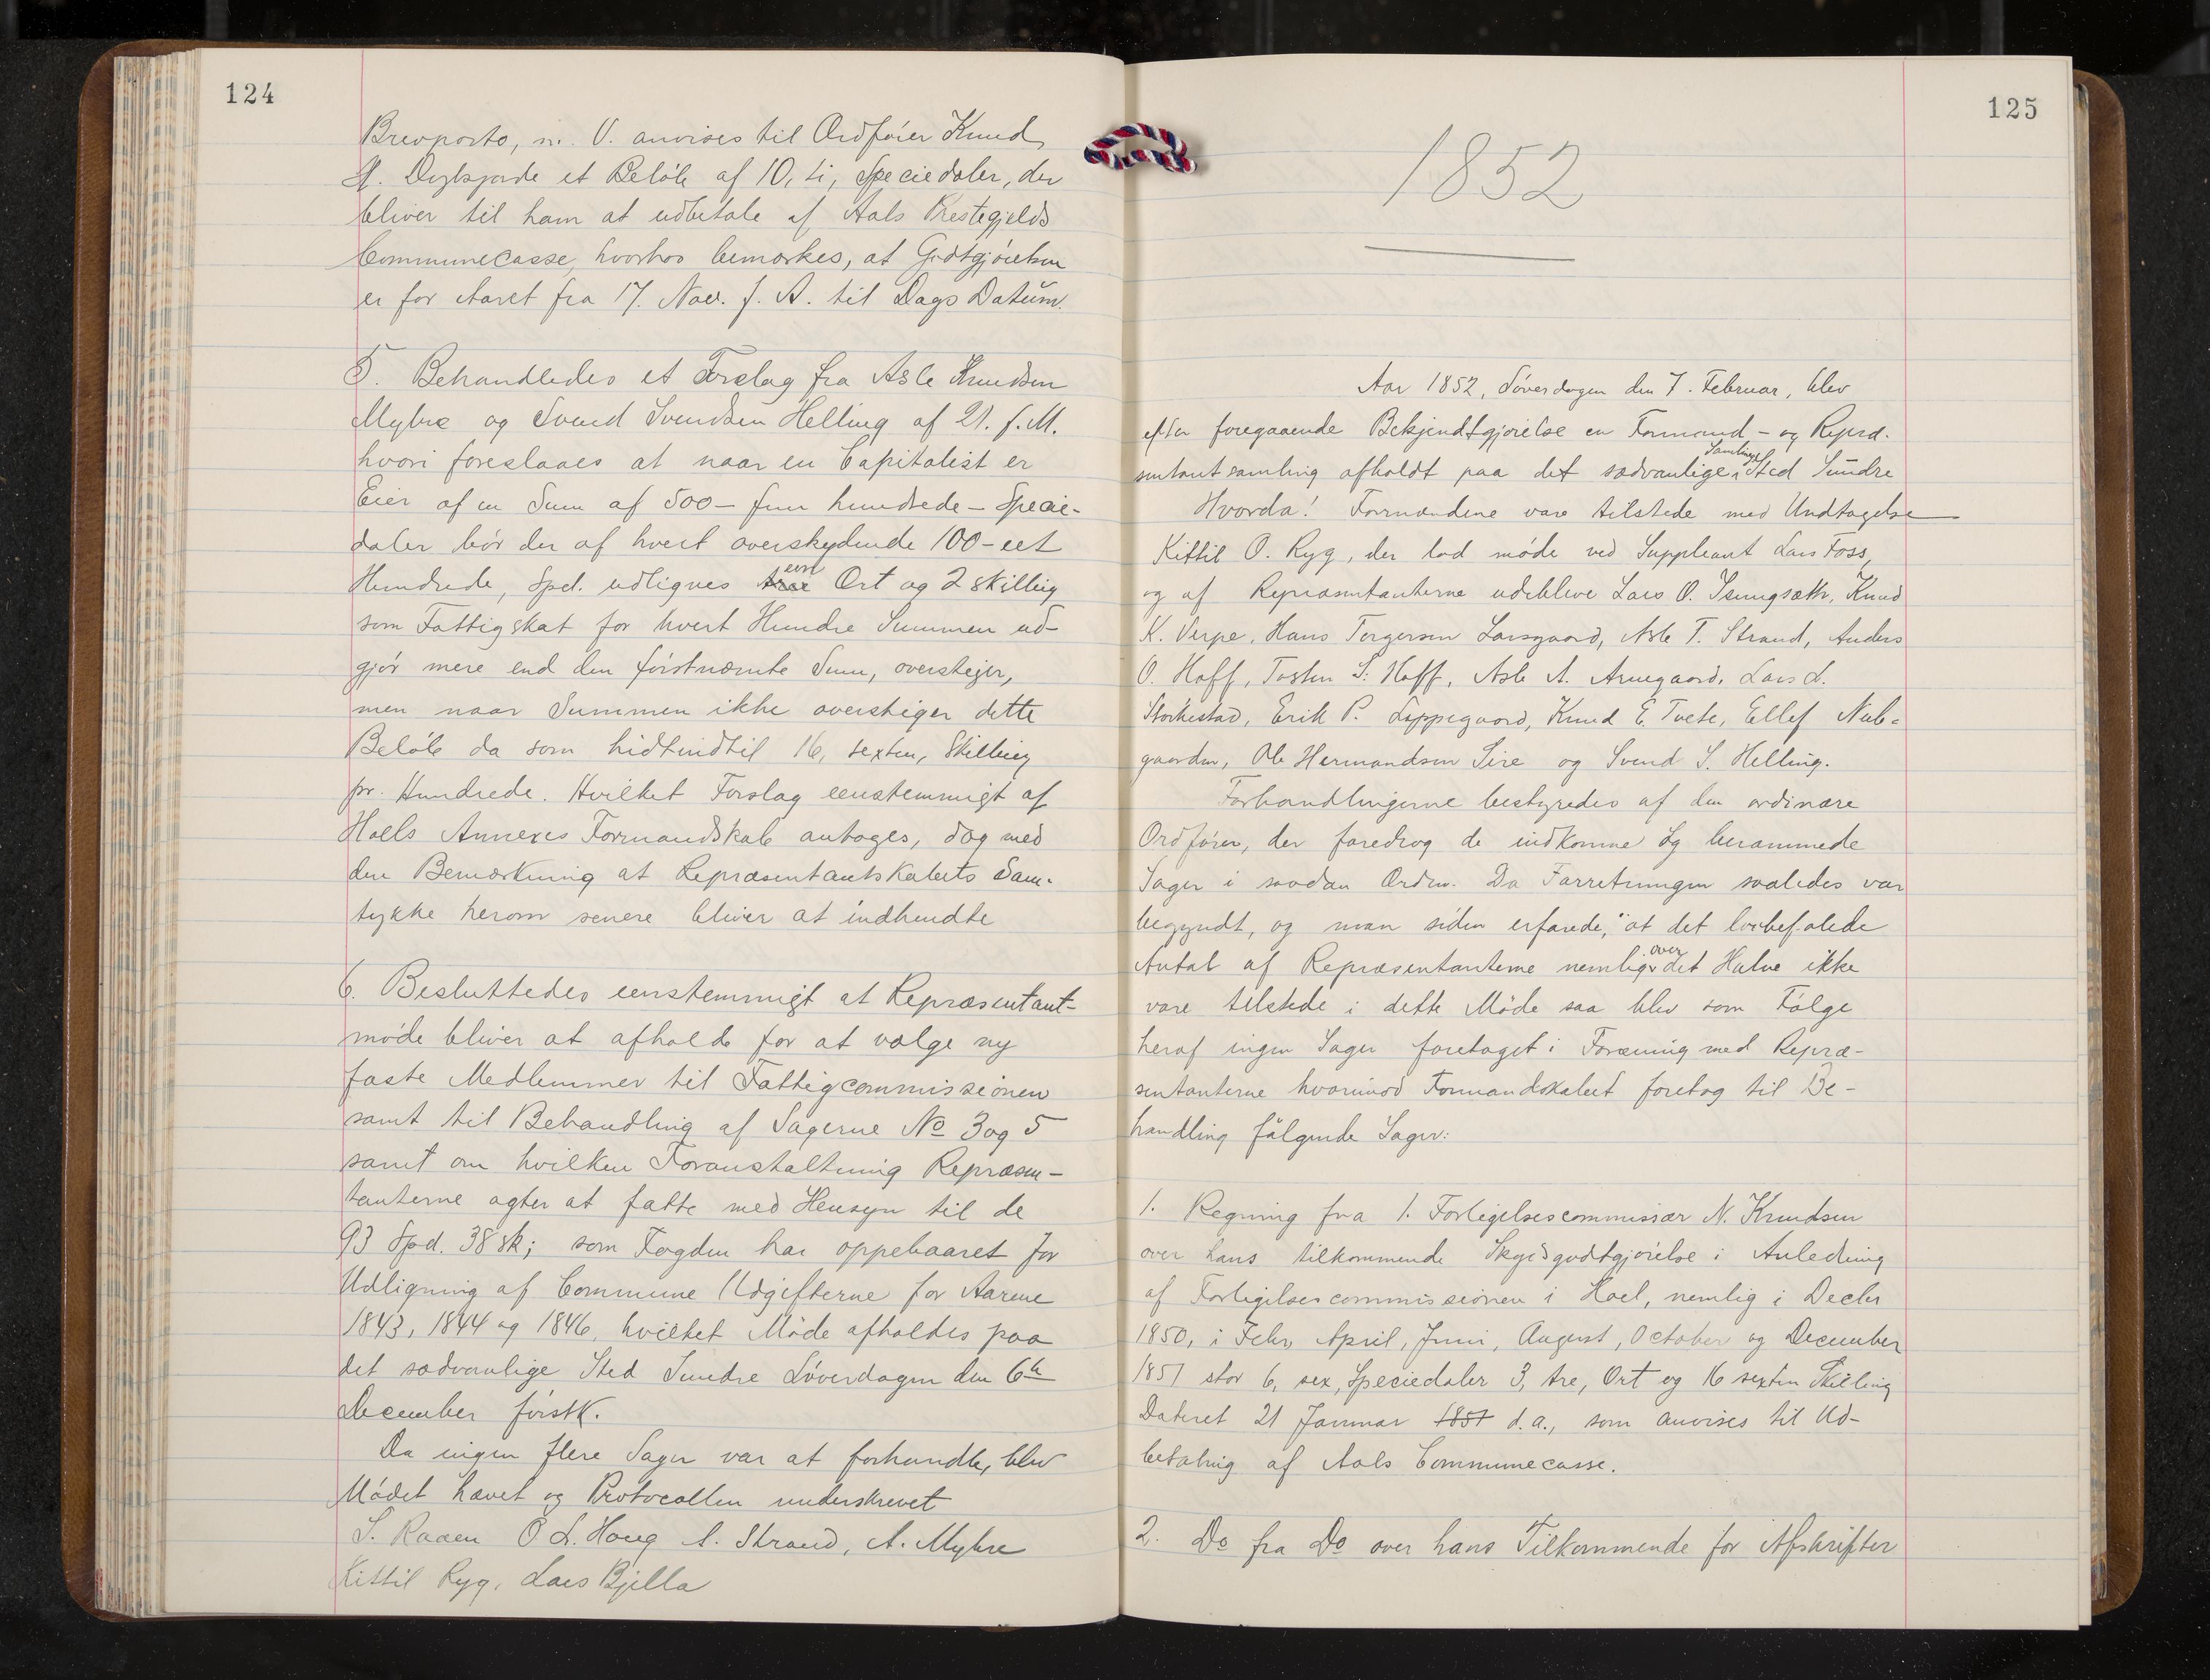 124
Brevporto, m. V. anvises til Ordføier Knud
H. Dyksjorde et Beløb af 10, ti, Speciedaler, der
bliver til ham at udbetale af Aals Prestegjelds
Communecasse, hvorhos bemærkes, at Godtgjørelsen
er for Aaret fra 17. Nov. f. A. til Dags Datum.
5. Behandledes et Forslag fra Asle Knudsen
Myhre og Svend Svendsen Helling af 21. f. M.
hvori foreslaaes at naar en Capitalist er
Eier af en Sum af 500 - fem hundrede - Specie-
daler bør der af hvert overskydende 100 - eet
Hundrede, Spd. udlignes eent Ort og 2 skilling
som Fattigskat for hvert Hundre Summen ud-
gjør mere end den førstnævnte Sum, overstiger,
men naar Summen ikke overstiger dette
Beløb da som hidtindtil 16, sexten, Skilling
pr. Hundrede. Hvilket Forslag eenstemmigt af
Hoels Annexes Formandskab antoges, dog med
den Bemærkning at Repræsentantskabets Sam-
tykke herom senere bliver at indhendte
6. Besluttedes eenstemmigt at Repræsentant-
møde bliver at afholde for at vælge ny
faste Medlemmer til Fattigcommissionen
samt til Behandling af Sagerne No 3 og 5
samt om hvilken Foranstaltning Repræsen-
tanterne agter at fatte med Hensyn til de
93 Spd. 38 sk; som Fogden har oppebaaret for
Udligning af Commune Udgifterne for Aarene
1843, 1844 og 1846, hvilket Møde afholdes paa
det sædvanlige Sted Sundre Løverdagen den 6te
December førstk.
Da ingen flere Sager var at forhandle, blev
Mødet hævet og Protocollen underskrevet
S. Raaen O L. Houg A. Strand, A. Myhre
Kittil Ryg, Lars Bjella
125
1852
Aar 1852, Løverdagen den 7. Februar, blev
efter foregaaende Bekjendtgjørelse en Formand - og Repræ-
sentantsamling afholdt paa det sædvanlige Samlings Sted Sundre
Hvorda! Formændene vare tilstede med Undtagelse
Kittil O. Ryg, der lod møde ved Suppleant Lars Foss,
og af Repræsentanterne udebleve Lars O. Isungsæth, Knud
K. Verpe, Hans Torgersen Larsgaard, Asle T. Strand, Anders
O. Hoff, Tosten S. Hoff, Asle A. Arnegaard, Lars L.
Storkestad, Erik P. Leppegaard, Knud E. Tvete, Ellef Nub-
gaarden, Ole Hermandsen Sire og Svend S. Helling.
Forhandlingerne bestyredes af den ordinære
Ordfører, der foredrog de indkomne og berammede
Sager i saadan Orden. Da Forretningen saaledes var
begyndt, og man siden erfarede, at det lovbefalede
Antal af Repræsentanterne nemlig over det Halve ikke
vare tilstede i dette Møde saa blev som Følge
heraf ingen Sager foretaget i Forening med Repræ-
sentanterne hvorimod Formandskabet foretog til Be-
handling følgende Sager:
1. Regning fra 1. Forligelsescommissær N. Knudsen
over hans tilkommende Skydsgodtgjørelse i Anledning
af Forligelsescommissionen i Hoel, nemlig i Decbr
1850, i Febr, April, Juni, August, October og December
1851 stor 6, sex, Speciedaler 3, tre, Ort og 16 sexten Skilling
Dateret 21 Januar 1851 d. a., som anvises til Ud-
betaling af Aals Communecasse.
2. Do fra Do over hans Tilkommende for Afskrifter